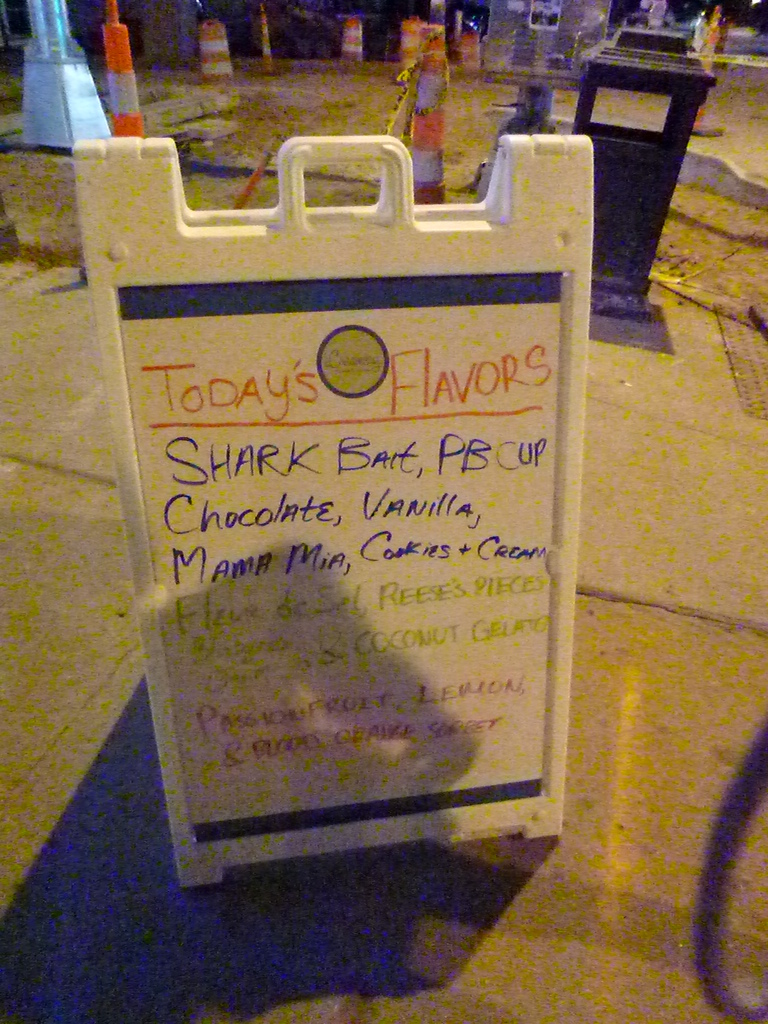 TODAY'S FLAVORS
SHARK BAIT, PB CUP
Chocolate, VANILLA,
MAMA MIA, COOKIES + CREAM
Fleur de Sel, REESE'S PIECES
& COCONUT GELATO
PASSIONFRUIT, LEMON,
& BLOOD ORANGE SORBET